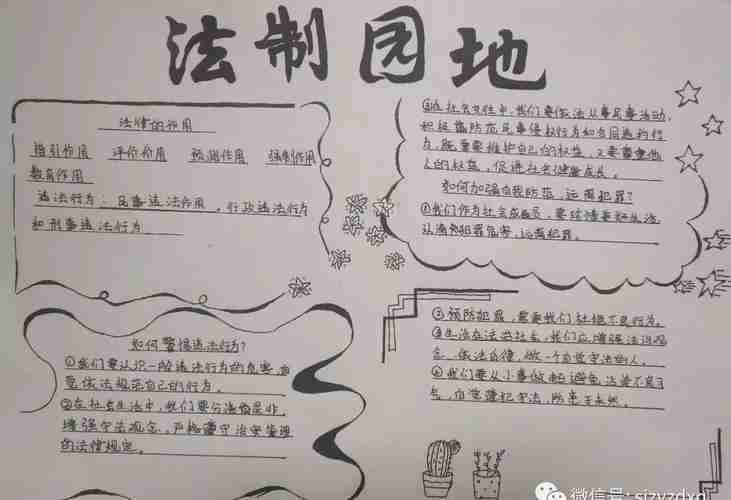 法制园地
法律的作用
指引作用 评价作用 预测作用 强制作用
教育作用
违法行为：民事违法作用，行政违法行为
和刑事违法行为
如何警惕违法行为？
①我们要认识一般违法行为的危害，自
觉依法规范自己的行为。
②在社会生活中，我们要分清是非，
增强守法观念，严格遵守治安管理
的法律规定。
③在社会交往中，我们要依法从事民事活动，
积极防范民事侵权行为和合同违约行
为，既要维护自己的权益，又要尊重他
人的权益，促进社会健康发展。
如何加强自我防范，远离犯罪？
①我们作为社会成员，要珍惜美好生活
认清犯罪危害，远离犯罪。
②预防犯罪，需要我们杜绝不良行为。
③生活在法治社会，我们应增强法治观
念，依法自律，做一个自觉守法的人。
④我们要从小事做起，避免沾染不良习
气，自觉遵纪守法，防患于未然。
微信号: sjzyzdxq